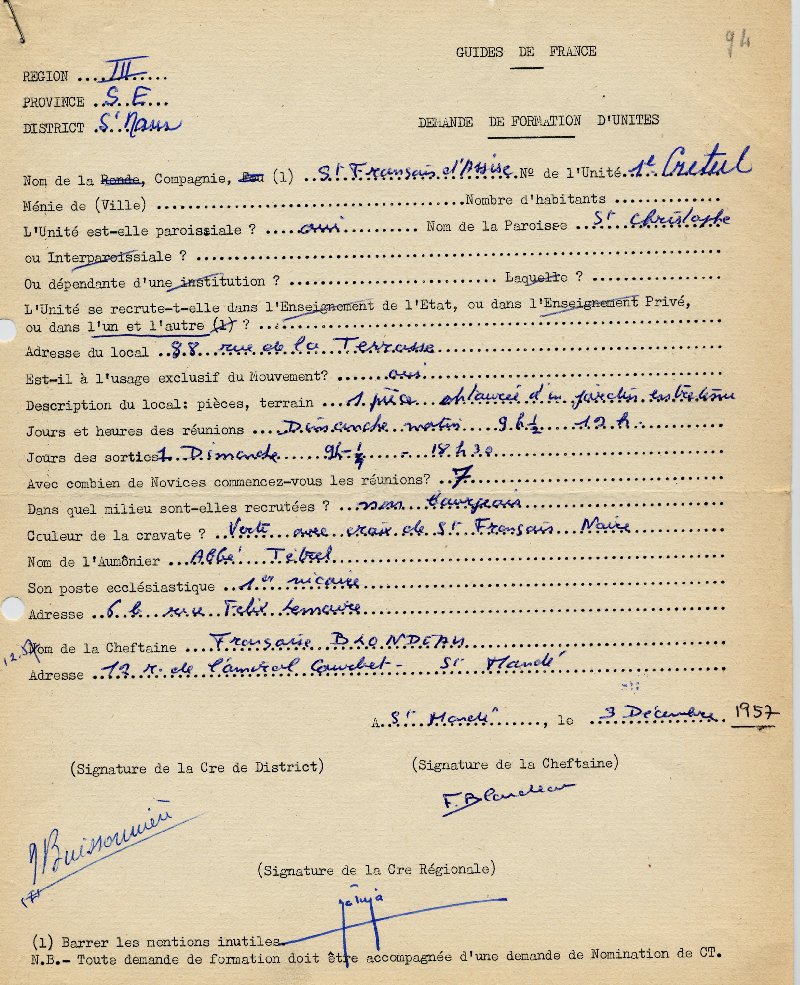 94
GUIDES DE FRANCE
REGION ....III......
PROVINCE ..S.E...
DISTRICT .St Maur
DEMANDE DE FORMATION D'UNITES
Nom de la Ronde, Compagnie, Feu (1) ..St François d'Assise.Nº de l'Unité.1e Creteil
Ménie de (Ville) ........................................Nombre d'habitants ...............
L'Unité est-elle paroissiale ? ....oui...... Nom de la Paroisse ..St Christophe
ou Interparoissiale ? ..........................................................
Ou dépendante d'une institution ? .......................... Laquelle ? ...................
L'Unité se recrute-t-elle dans l'Enseignement de l'Etat, ou dans l'Enseignement Privé,
ou dans l'un et l'autre (1) ? ..........................................................
Adresse du local ..88 rue de la Terrasse..........................
Est-il à l'usage exclusif du Mouvement? ......oui..........................
Description du local: pièces, terrain ....1 pièce entourée d'un jardin
Jours et heures des réunions ...Dimanche matin 9h ½ 12 h.
Jours des sorties 1 Dimanche 9h - 18 h 30
Avec combien de Novices commencez-vous les réunions? ..7..........................
Dans quel milieu sont-elles recrutées ? ..bourgeois..........................
Couleur de la cravate ? ..Verte avec croix de St François Noire
Nom de l'Aumônier ..Abbé Tébrel..........................
Son poste ecclésiastique ..1er vicaire..........................
Adresse ..6 b rue Felix Lemaire..........................
12.57
Nom de la Cheftaine ....Françoise BLONDEAU..........................
Adresse ..12 r. de l'amiral Courbet - St Mandé..........................
A .St Mandé......, le ..3 Décembre. 1957
(Signature de la Cre de District)
(Signature de la Cheftaine)
F. Blondeau
J Buissonnière
(Signature de la Cre Régionale)
(1) Barrer les mentions inutiles.
N.B.- Toute demande de formation doit être accompagnée d'une demande de Nomination de CT.